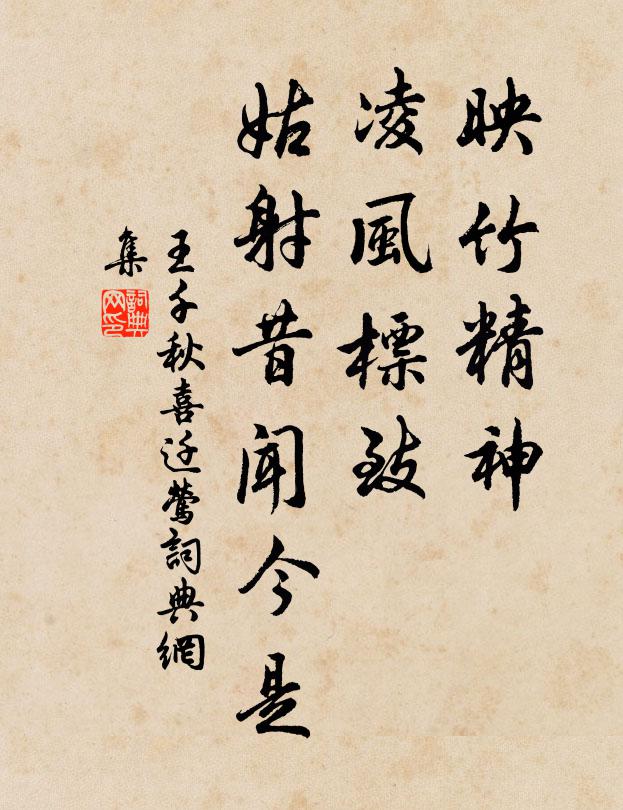 映竹精神
凌風標致
姑射昔聞今是
王千秋喜迁鶯詞典網
集
詞典
网印